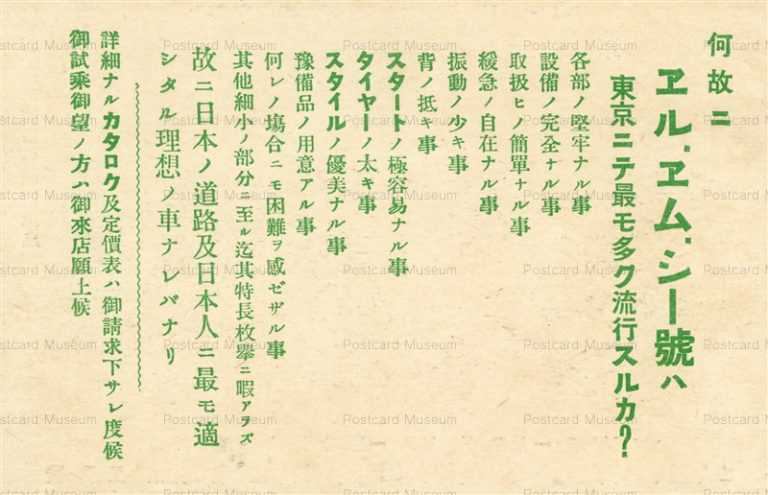 何故ニ
ヱル.ヱム.シー號ハ
東京ニテ最モ多ク流行スルカ?
各部ノ堅牢ナル事
設備ノ完全ナル事
取扱ヒノ簡單ナル事
緩急ノ自在ナル事
振動ノ少キ事
背ノ抵キ事
スタートノ極容易ナル事
タイヤーノ太キ事
スタイルノ優美ナル事
豫備品ノ用意アル事
何レノ塲合ニモ困難ヲ感ゼザル事
其他細小ノ部分ニ至ル迄其特長枚擧ニ暇アラズ
故ニ日本ノ道路及日本人ニ最モ適
シタル理想ノ車ナレバナリ
詳細ナルカタロク及定價表ハ御請求下サレ度候
御試乘御望ノ方ハ御來店願上候
Postcard Museum